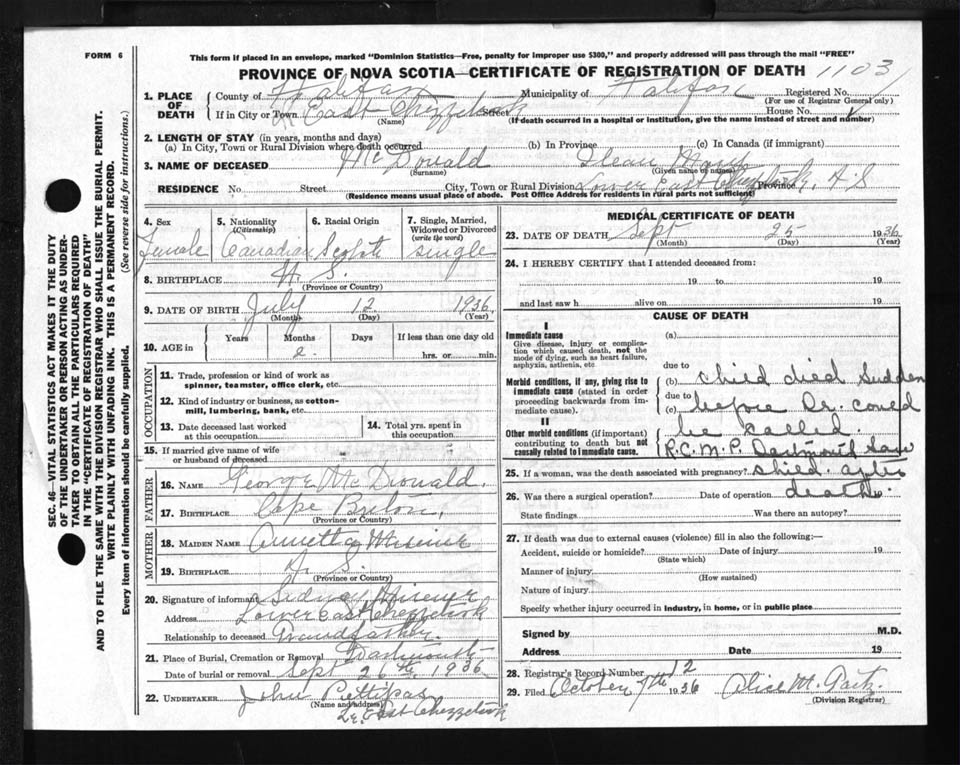 FORM 6
This form if placed in an envelope, marked "Dominion Statistics—Free, penalty for improper use $300," and properly addressed will pass through the mail "FREE"
PROVINCE OF NOVA SCOTIA—CERTIFICATE OF REGISTRATION OF DEATH 1103
1. PLACE OF DEATH
County of Halifax Municipality of Halifax Registered No.
(For use of Registrar General only)
If in City or Town East Chezzetcook Street House No.
(Name) (If death occurred in a hospital or institution, give the name instead of street and number)
2. LENGTH OF STAY (in years, months and days)
(a) In City, Town or Rural Division where death occurred (b) In Province (c) In Canada (if immigrant)
3. NAME OF DECEASED McDonald Mary
(Surname) (Given name or names)
RESIDENCE No Street City, Town or Rural Division Lower East Chezzetcook, Province N S
(Residence means usual place of abode. Post Office Address for residents in rural parts not sufficient)
4. Sex
Female
5. Nationality
(Citizenship)
Canadian
6. Racial Origin
Scotch
7. Single, Married, Widowed or Divorced
(write the word)
single
8. BIRTHPLACE N. S.
(Province or Country)
9. DATE OF BIRTH July 12 1936
(Month) (Day) (Year)
10. AGE in
Years Months Days If less than one day old
2 hrs. or min.
OCCUPATION
11. Trade, profession or kind of work as spinner, teamster, office clerk, etc.
12. Kind of industry or business, as cotton-mill, lumbering, bank, etc.
13. Date deceased last worked at this occupation
14. Total yrs. spent in this occupation
15. If married give name of wife or husband of deceased
FATHER
16. NAME George McDonald.
17. BIRTHPLACE Cape Breton,
(Province or Country)
MOTHER
18. MAIDEN NAME Annetta Misener
19. BIRTHPLACE N. S.
(Province or Country)
20. Signature of informant Sidney Misener
Address Lower East Chezzetcook
Relationship to deceased Grandfather.
21. Place of Burial, Cremation or Removal Dartmouth
Date of burial or removal Sept 26th, 1936
22. UNDERTAKER John Pettipas
(Name and address)
Lr. East Chezzetcook
MEDICAL CERTIFICATE OF DEATH
23. DATE OF DEATH Sept 25 1936
(Month) (Day) (Year)
24. I HEREBY CERTIFY that I attended deceased from:
19 to 19
and last saw h alive on 19
CAUSE OF DEATH
I
Immediate cause
Give disease, injury or complication which caused death, not the mode of dying, such as heart failure, asphyxia, asthenia, etc
(a)
due to
Morbid conditions, if any, giving rise to immediate cause (stated in order proceeding backwards from immediate cause).
(b) child died Sudden
due to
(c) before Dr. could
II
Other morbid conditions (if important) contributing to death but not causally related to immediate cause.
be called.
R.C.M.P. Dartmouth saw
25. If a woman, was the death associated with pregnancy? child after
26. Was there a surgical operation? Date of operation death.
State findings Was there an autopsy?
27. If death was due to external causes (violence) fill in also the following:—
Accident, suicide or homicide? Date of injury 19
(State which)
Manner of injury
(How sustained)
Nature of injury
Specify whether injury occurred in industry, in home, or in public place
Signed by M.D.
Address Date 19
28. Registrar's Record Number 12
29. Filed October 7th 1936 Alice M.
(Division Registrar)
SEC. 46—VITAL STATISTICS ACT MAKES IT THE DUTY
OF THE UNDERTAKER OR PERSON ACTING AS UNDER-
TAKER TO OBTAIN ALL THE PARTICULARS REQUIRED
IN THE "CERTIFICATE OF REGISTRATION OF DEATH"
AND TO FILE THE SAME WITH THE DIVISION REGISTRAR WHO SHALL ISSUE THE BURIAL PERMIT.
WRITE PLAINLY WITH UNFADING INK. THIS IS A PERMANENT RECORD.
Every item of information should be carefully supplied. (See reverse side for instructions.)